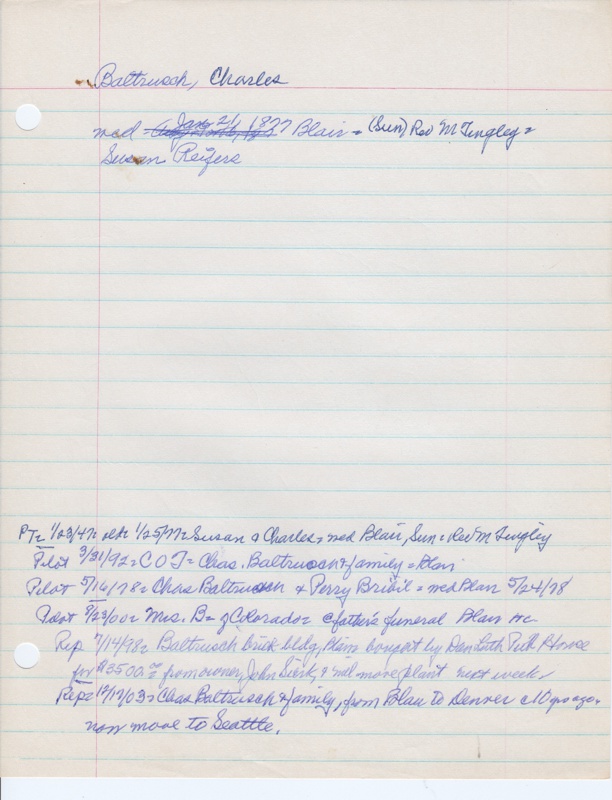 Baltrusch, Charles
Jan 21, 1877
med = Blair = (Sun) Rev M Tingley =
Susan Reizere
PT = 1/25/77 = Susan & Charles = med Blair, Sun = Rev M Tingley
Pilot 3/31/92 = C O T = Chas. Baltrusch & family = Blair
Pilot 5/16/78 = Chas Baltrusch & Perry = med Blair 5/24/78
Pilot 8/23/00 = Mrs. B = of Colorado = father's funeral Blair
Rep 7/14/98 = Baltrusch brick bldg, Blair bought by Pub House
for $3500.00 = from owner, John & will move plant next week.
Rep = 12/17/03 = Chas Baltrusch & family, from Blair to Denver c10 yrs ago,
now move to Seattle.